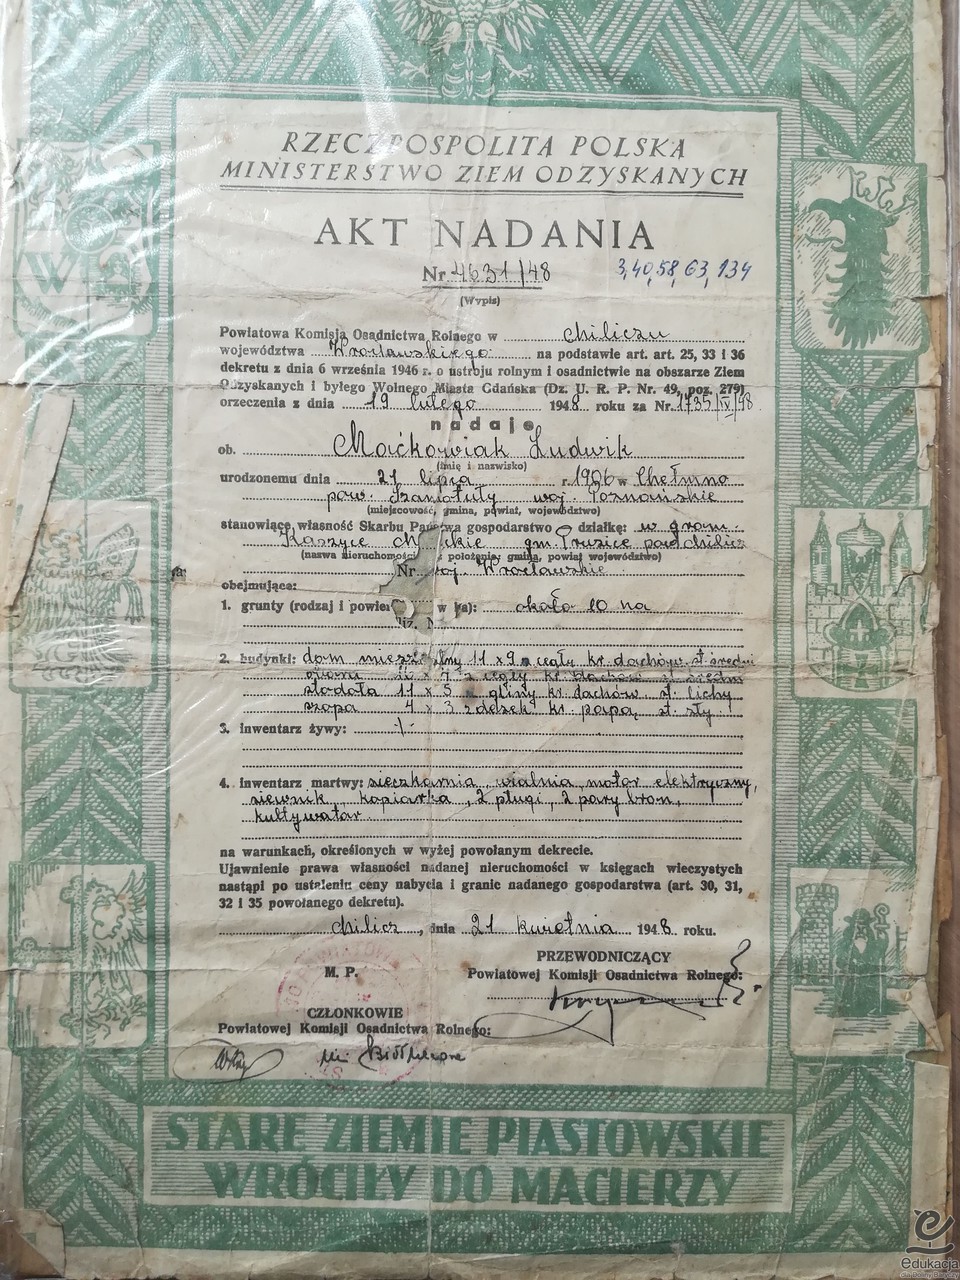 RZECZPOSPOLITA POLSKA
MINISTERSTWO ZIEM ODZYSKANYCH
AKT NADANIA
Nr 4631/48 3,40,58,63,134
(Wypis)
Powiatowa Komisja Osadnictwa Rolnego w Miliczu
województwa Wrocławskiego na podstawie art. art. 25, 33 i 36
dekretu z dnia 6 września 1946 r. o ustroju rolnym i osadnictwie na obszarze Ziem
Odzyskanych i byłego Wolnego Miasta Gdańska (Dz. U. R. P. Nr. 49, poz. 279)
orzeczenia z dnia 19 lutego 1948 roku za Nr. 1735/IV/48
nadaje
ob. Maćkowiak Ludwik
(imię i nazwisko)
urodzonemu dnia 27 lipca r. 1906 w Chełmno
pow. Szamotuły woj. Poznańskie
(miejscowość, gmina, powiat, województwo)
stanowiące własność Skarbu Państwa gospodarstwo – działkę: w grom.
Kaszyce gm. Prusice pow. Milicz
(nazwa nieruchomości położenie, gmina, powiat województwo)
Nr woj. Wrocławskie
obejmująca:
1. grunty (rodzaj i powier w ha): około 10 ha
2. budynki: dom mieszkalny 11 x 9 z cegły kr. dachów. st. średni
obora 11 x 7 z cegły kr. dachów st. średni
stodoła 11 x 5 z gliny kr. dachów. st. lichy
szopa 4 x 3 z desek kr. papą st. zły
3. inwentarz żywy: -/-
4. inwentarz martwy: sieczkarnia, wialnia, motor elektryczny,
siewnik, kopiarka, 2 pługi, 2 pary bron,
kultywator.
na warunkach, określonych w wyżej powołanym dekrecie.
Ujawnienie prawa własności nadanej nieruchomości w księgach wieczystych
nastąpi po ustaleniu ceny nabycia i granic nadanego gospodarstwa (art. 30, 31,
32 i 35 powołanego dekretu).
Milicz, dnia 21 kwietnia 1948 roku.
PRZEWODNICZĄCY
M. P. Powiatowej Komisji Osadnictwa Rolnego:
CZŁONKOWIE
Powiatowej Komisji Osadnictwa Rolnego:
STARE ZIEMIE PIASTOWSKIE
WRÓCIŁY DO MACIERZY
edukacja